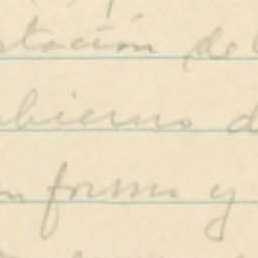 tación de
bierno d
n forma y